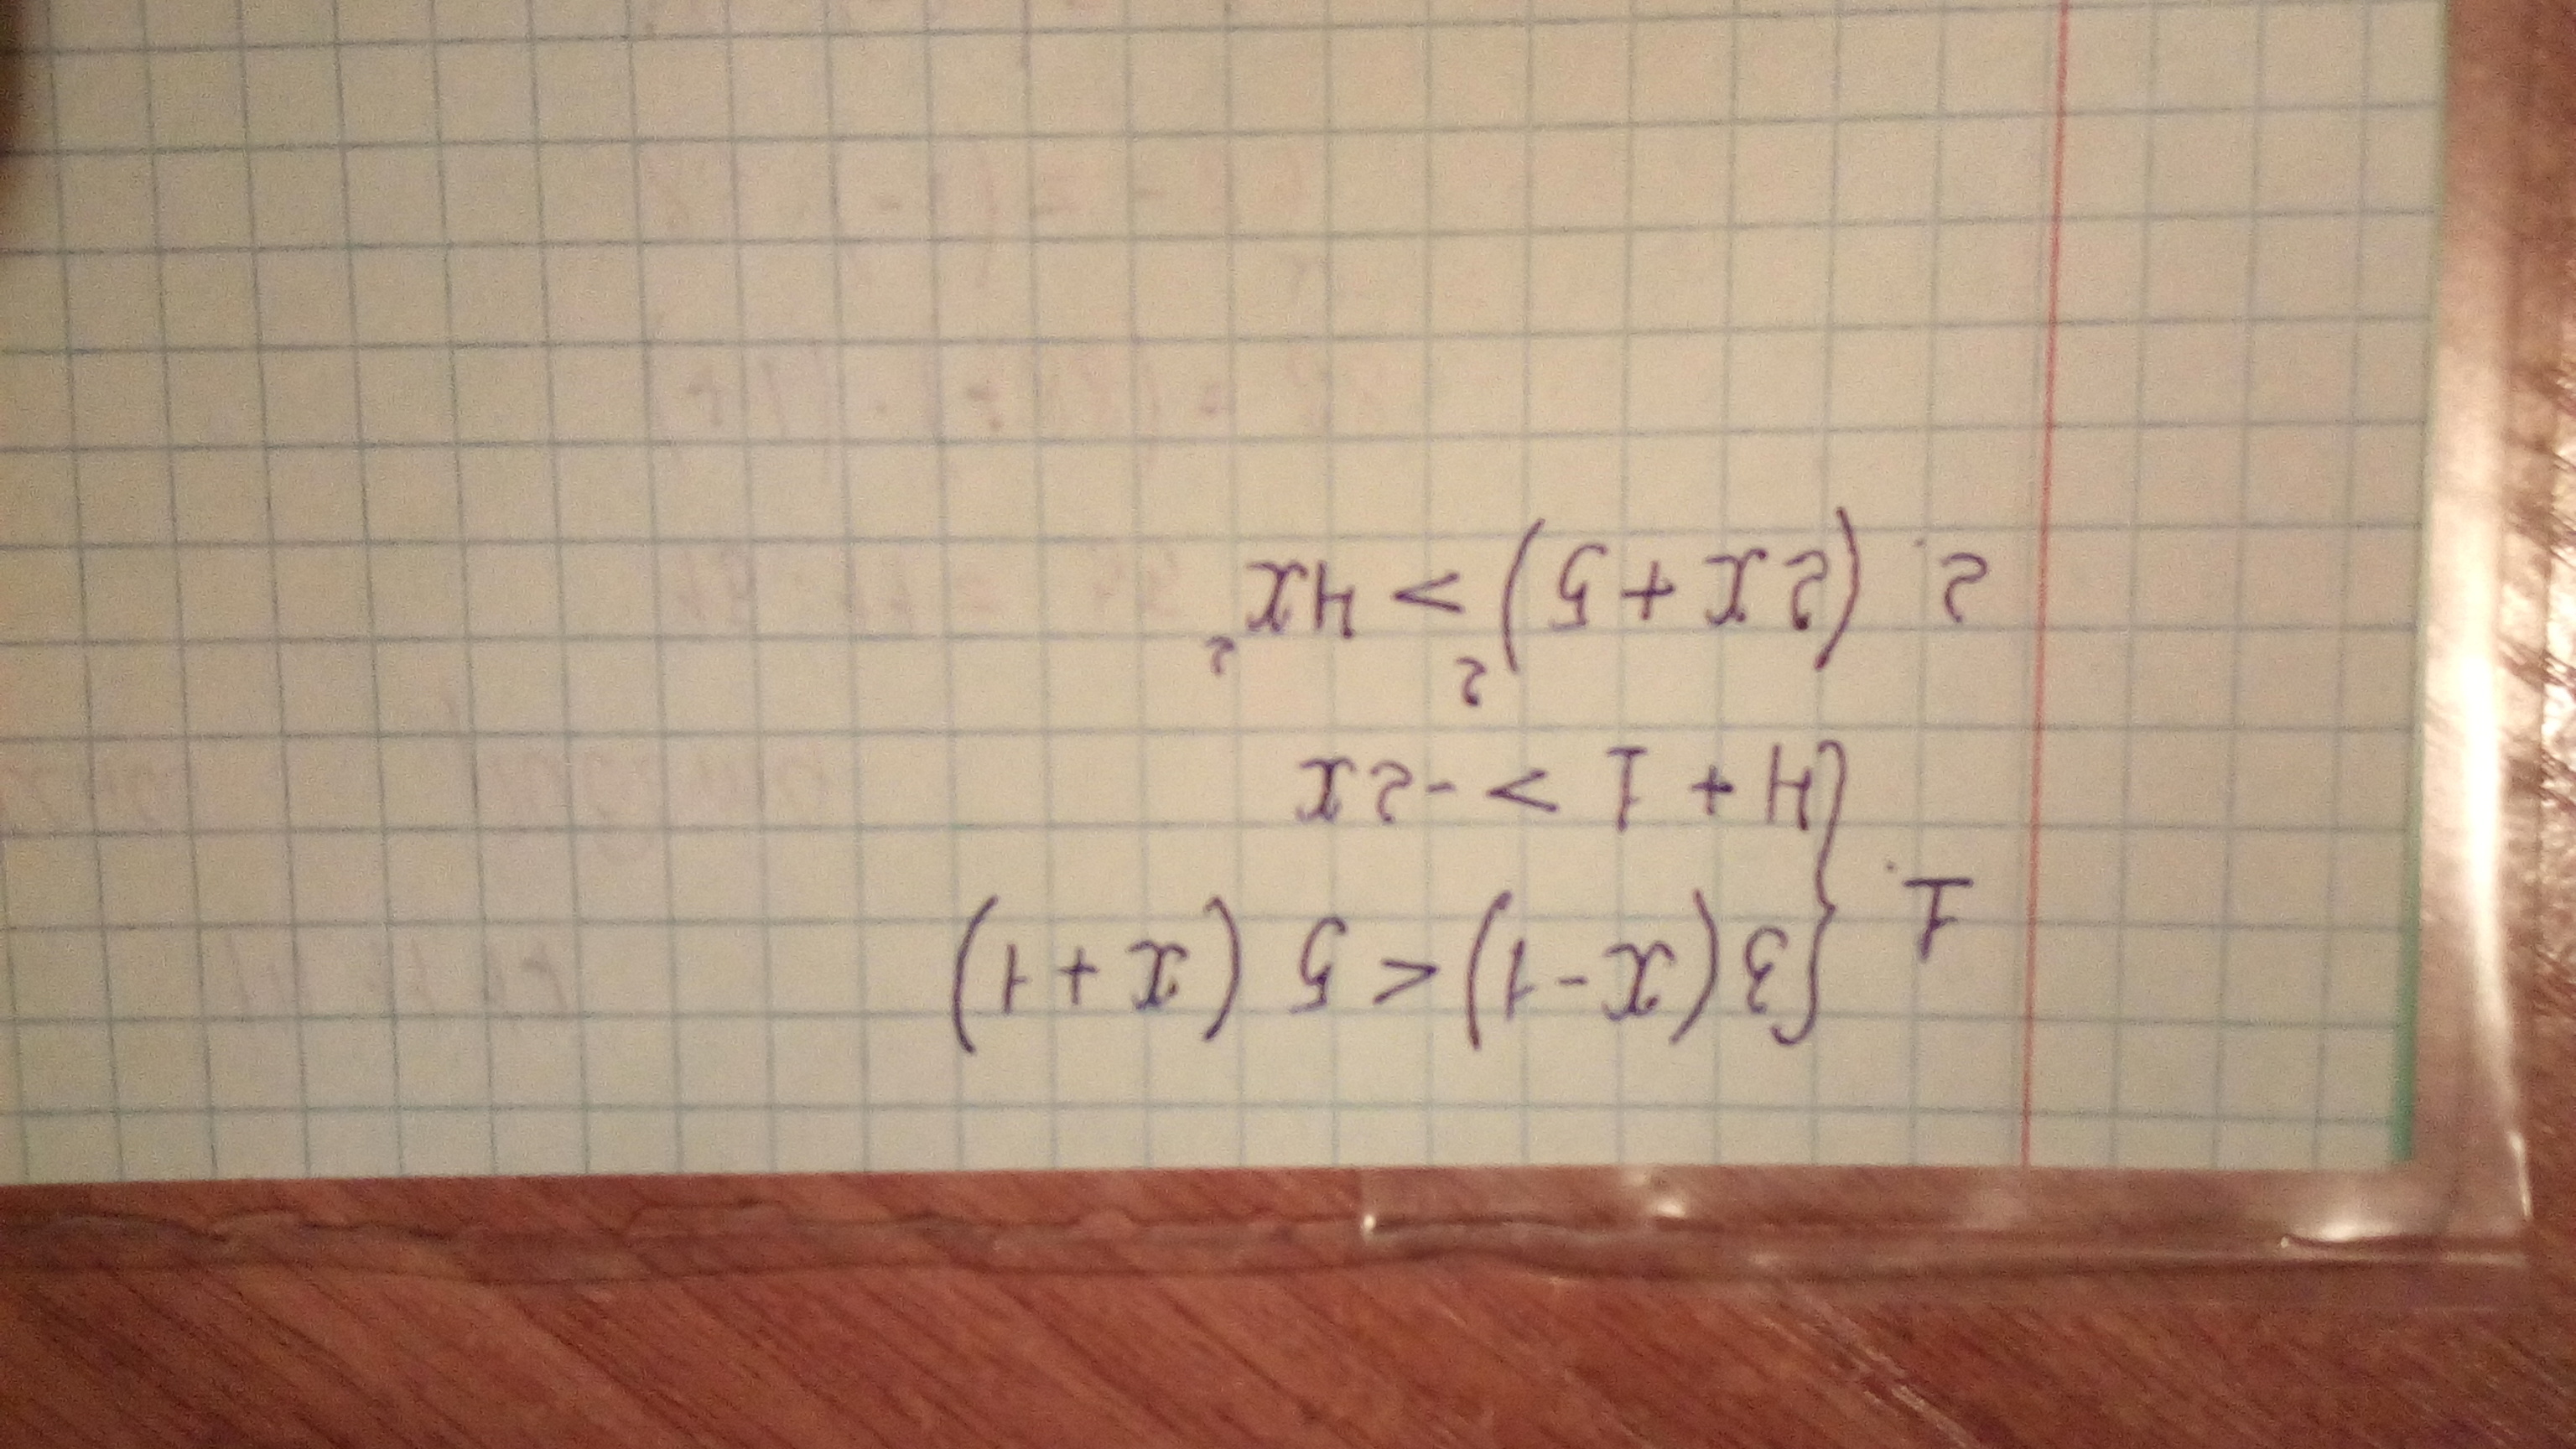 1. { 3(x-1) < 5(x+1)
4 + 1 > -2x
2. (2x+5)² > 4x²